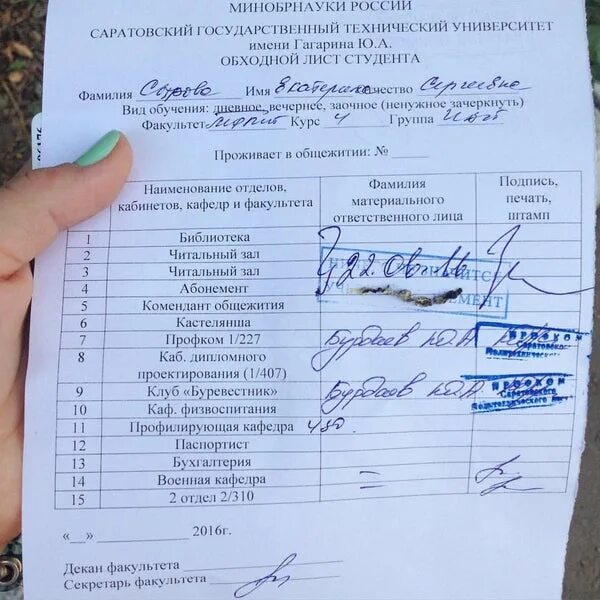 МИНОБРНАУКИ РОССИИ
САРАТОВСКИЙ ГОСУДАРСТВЕННЫЙ ТЕХНИЧЕСКИЙ УНИВЕРСИТЕТ
имени Гагарина Ю.А.
ОБХОДНОЙ ЛИСТ СТУДЕНТА
Фамилия Имя Екатерина Отчество Сергеевна
Вид обучения: дневное, вечернее, заочное (ненужное зачеркнуть)
Факультет Курс 4 Группа
Проживает в общежитии: № ____
Наименование отделов, кабинетов, кафедр и факультета Фамилия материального ответственного лица Подпись, печать, штамп
1 Библиотека
2 Читальный зал
3 Читальный зал 22.06.16
4 Абонемент
5 Комендант общежития
6 Кастелянша
7 Профком 1/227 Бурдаев Ю.А ПРОФКОМ Саратовского Политехнического
8 Каб. дипломного проектирования (1/407)
9 Клуб «Буревестник» Бурдаев Ю.А ПРОФКОМ Саратовского Политехнического
10 Каф. физвоспитания
11 Профилирующая кафедра
12 Паспортист
13 Бухгалтерия
14 Военная кафедра –
15 2 отдел 2/310 –
«__» ____________ 2016г.
Декан факультета
Секретарь факультета